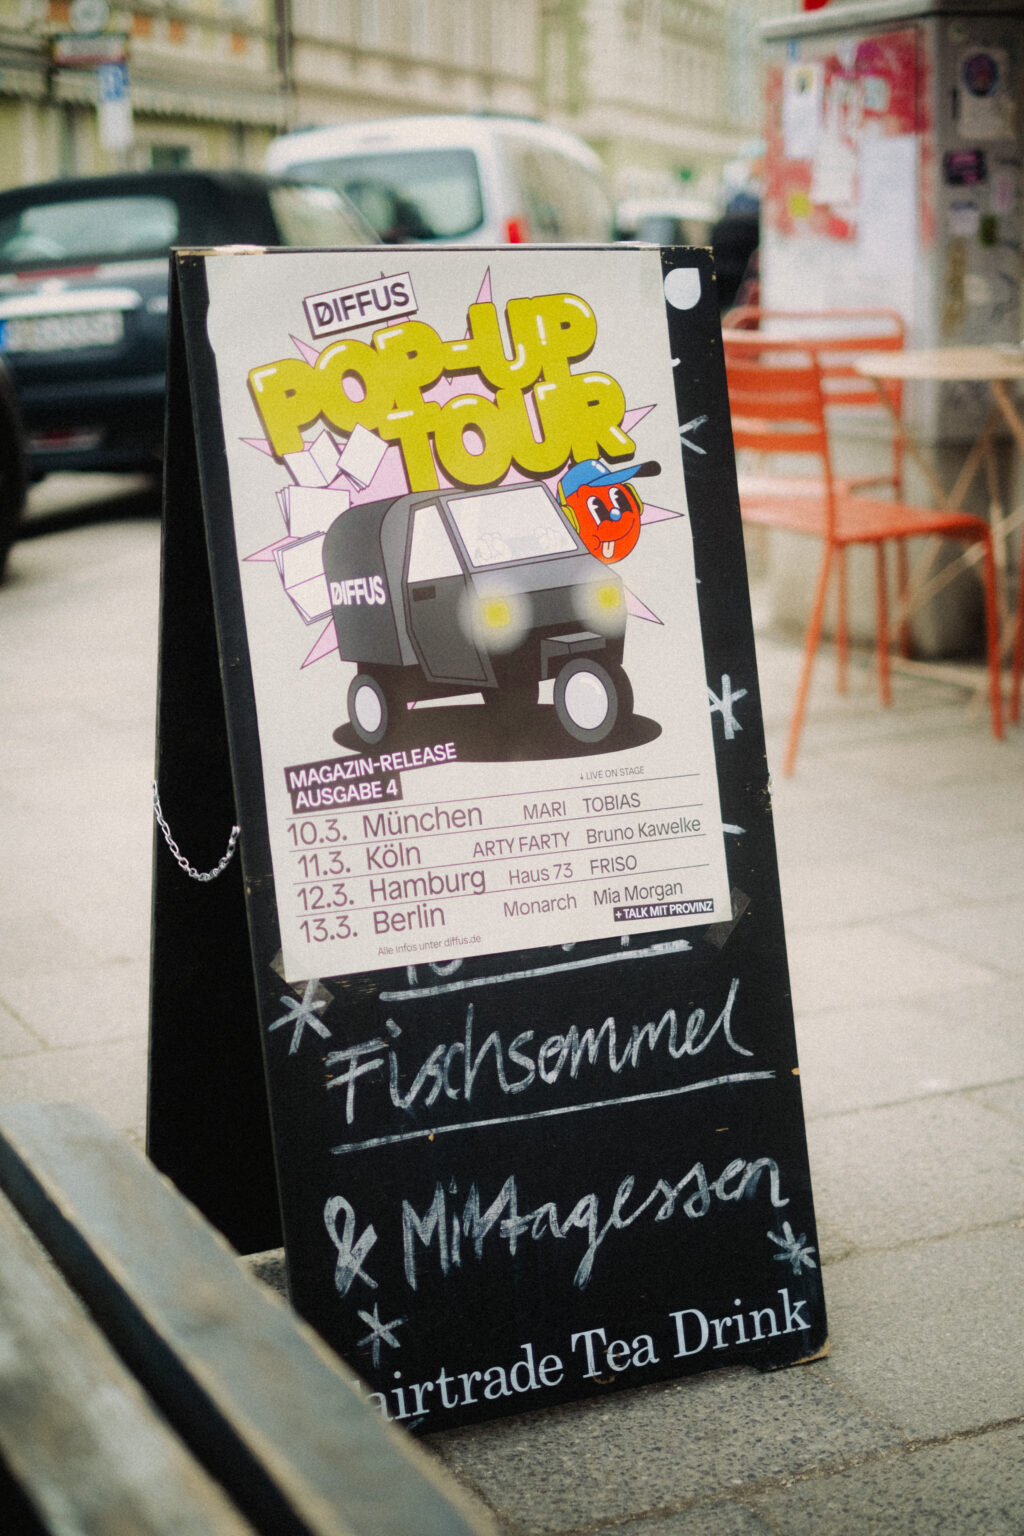 DIFFUS
POP-UP
TOUR
DIFFUS
MAGAZIN-RELEASE
AUSGABE 4
↓ LIVE ON STAGE
10.3. München MARI TOBIAS
11.3. Köln ARTY FARTY Bruno Kawelke
12.3. Hamburg Haus 73 FRISO
13.3. Berlin Monarch Mia Morgan
+ TALK MIT PROVINZ
Alle Infos unter diffus.de
Fischsemmel
& Mittagessen
airtrade Tea Drink